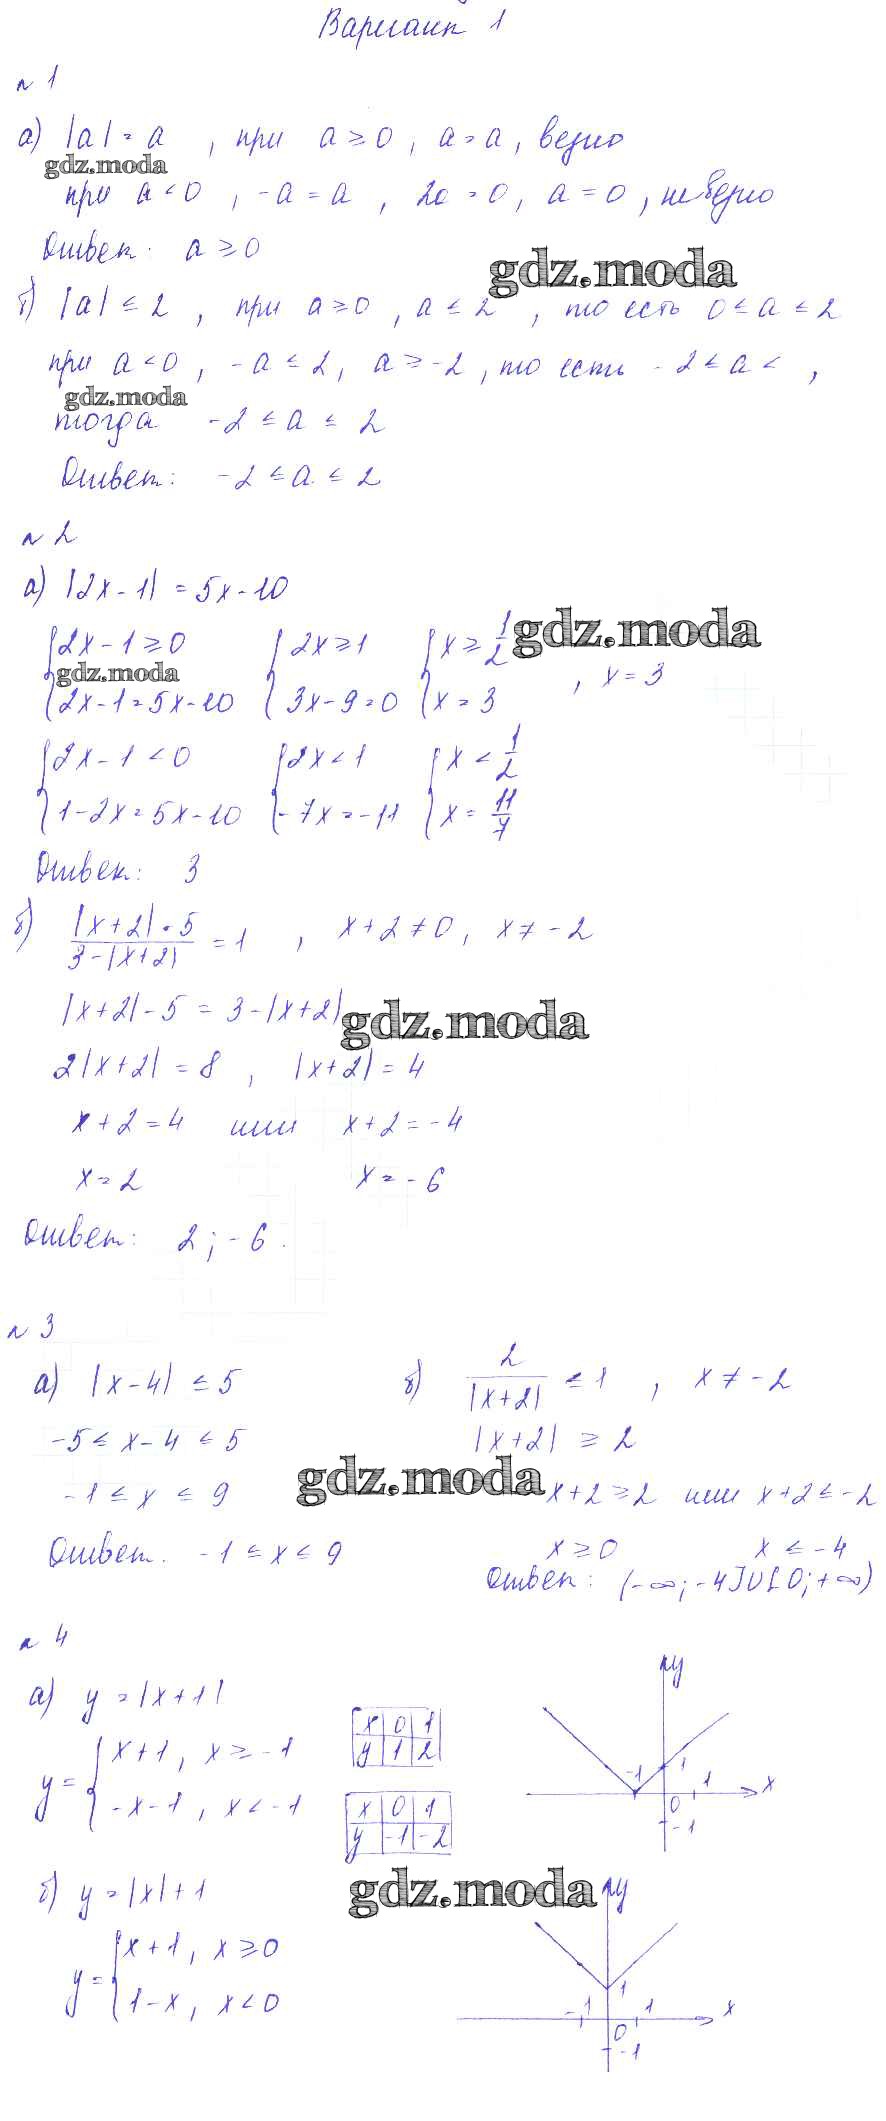 Вариант 1
№ 1
а) |a| = a , при a ≥ 0 , a = a , верно
gdz.moda
при a < 0 , -a = a , 2a = 0 , a = 0 , неверно
Ответ: a ≥ 0
gdz.moda
б) |a| ≤ 2 , при a ≥ 0 , a ≤ 2 , то есть 0 ≤ a ≤ 2
при a < 0 , -a ≤ 2 , a ≥ -2 , то есть -2 ≤ a < ,
gdz.moda
тогда -2 ≤ a ≤ 2
Ответ: -2 ≤ a ≤ 2
№ 2
а) |2x - 1| = 5x - 10
{2x - 1 ≥ 0 {2x ≥ 1 {x ≥ 1/2
gdz.moda
gdz.moda
{2x - 1 = 5x - 10 {3x - 9 = 0 {x = 3 , x = 3
{2x - 1 < 0 {2x < 1 {x < 1/2
{1 - 2x = 5x - 10 {-7x = -11 {x = 11/7
Ответ: 3
б) (|x + 2| - 5)/(3 - |x + 2|) = 1 , x + 2 ≠ 0 , x ≠ -2
|x + 2| - 5 = 3 - |x + 2|
gdz.moda
2|x + 2| = 8 , |x + 2| = 4
x + 2 = 4 или x + 2 = -4
x = 2 x = -6
Ответ: 2 ; -6 .
№ 3
а) |x - 4| ≤ 5 б) 2/|x + 2| ≤ 1 , x ≠ -2
-5 ≤ x - 4 ≤ 5 |x + 2| ≥ 2
gdz.moda
-1 ≤ x ≤ 9 x + 2 ≥ 2 или x + 2 ≤ -2
Ответ. -1 ≤ x ≤ 9 x ≥ 0 x ≤ -4
Ответ: (-∞; -4]U[0; +∞)
№ 4
а) y = |x + 1|
y = {x + 1 , x ≥ -1
{-x - 1 , x < -1
x 0 1
y 1 2
x 0 1
y -1 -2
y
-1 1
0 1 x
-1
б) y = |x| + 1
gdz.moda
y = {x + 1 , x ≥ 0
{1 - x , x < 0
y
1
-1 1 x
0
-1